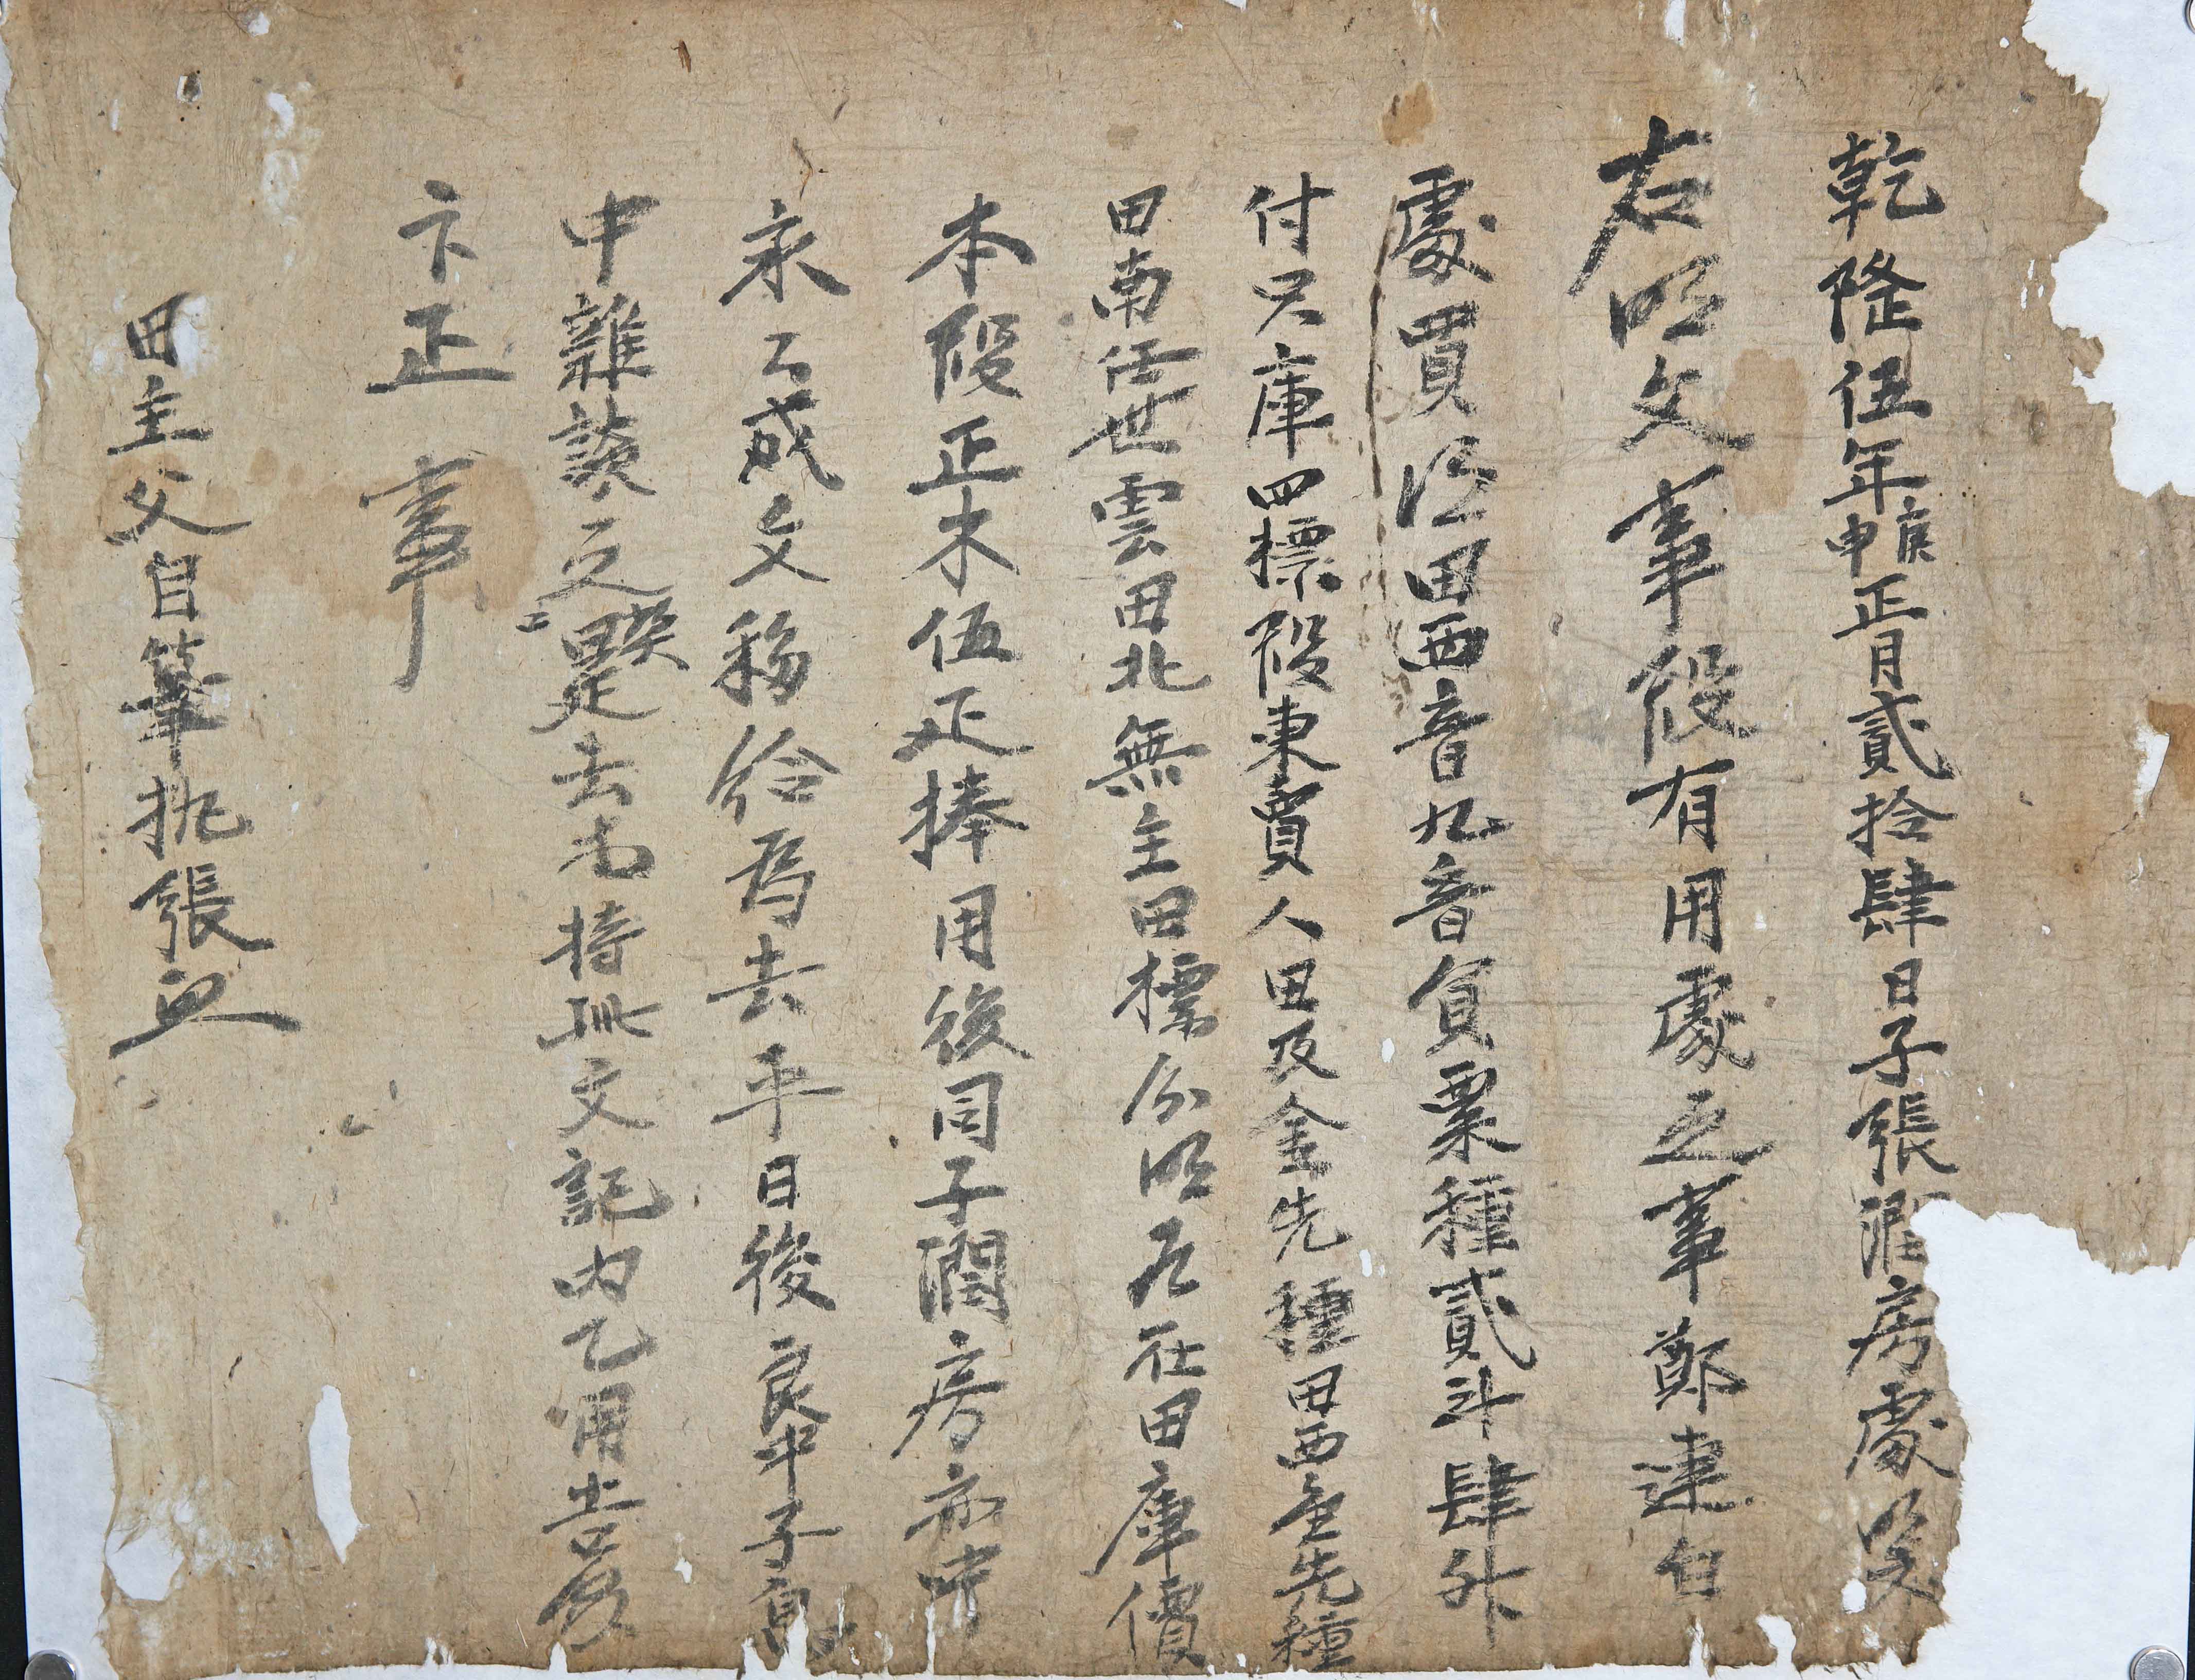 乾隆伍年庚申正月貳拾肆日子張潤房處明文
右明文事段有用處之事鄭連白
處買得田西音九音負粟種貳斗肆升
付只庫四標段東賣人田及金先種田西金先種
田南任世雲田北無主田標分明是在田庫價
本段正木伍疋捧用後同子潤房亦中
永永成文移給爲去乎日後良中子孫
中雜談之弊是去乙持此文記內乙用告官
卞正事
田主父自筆執張